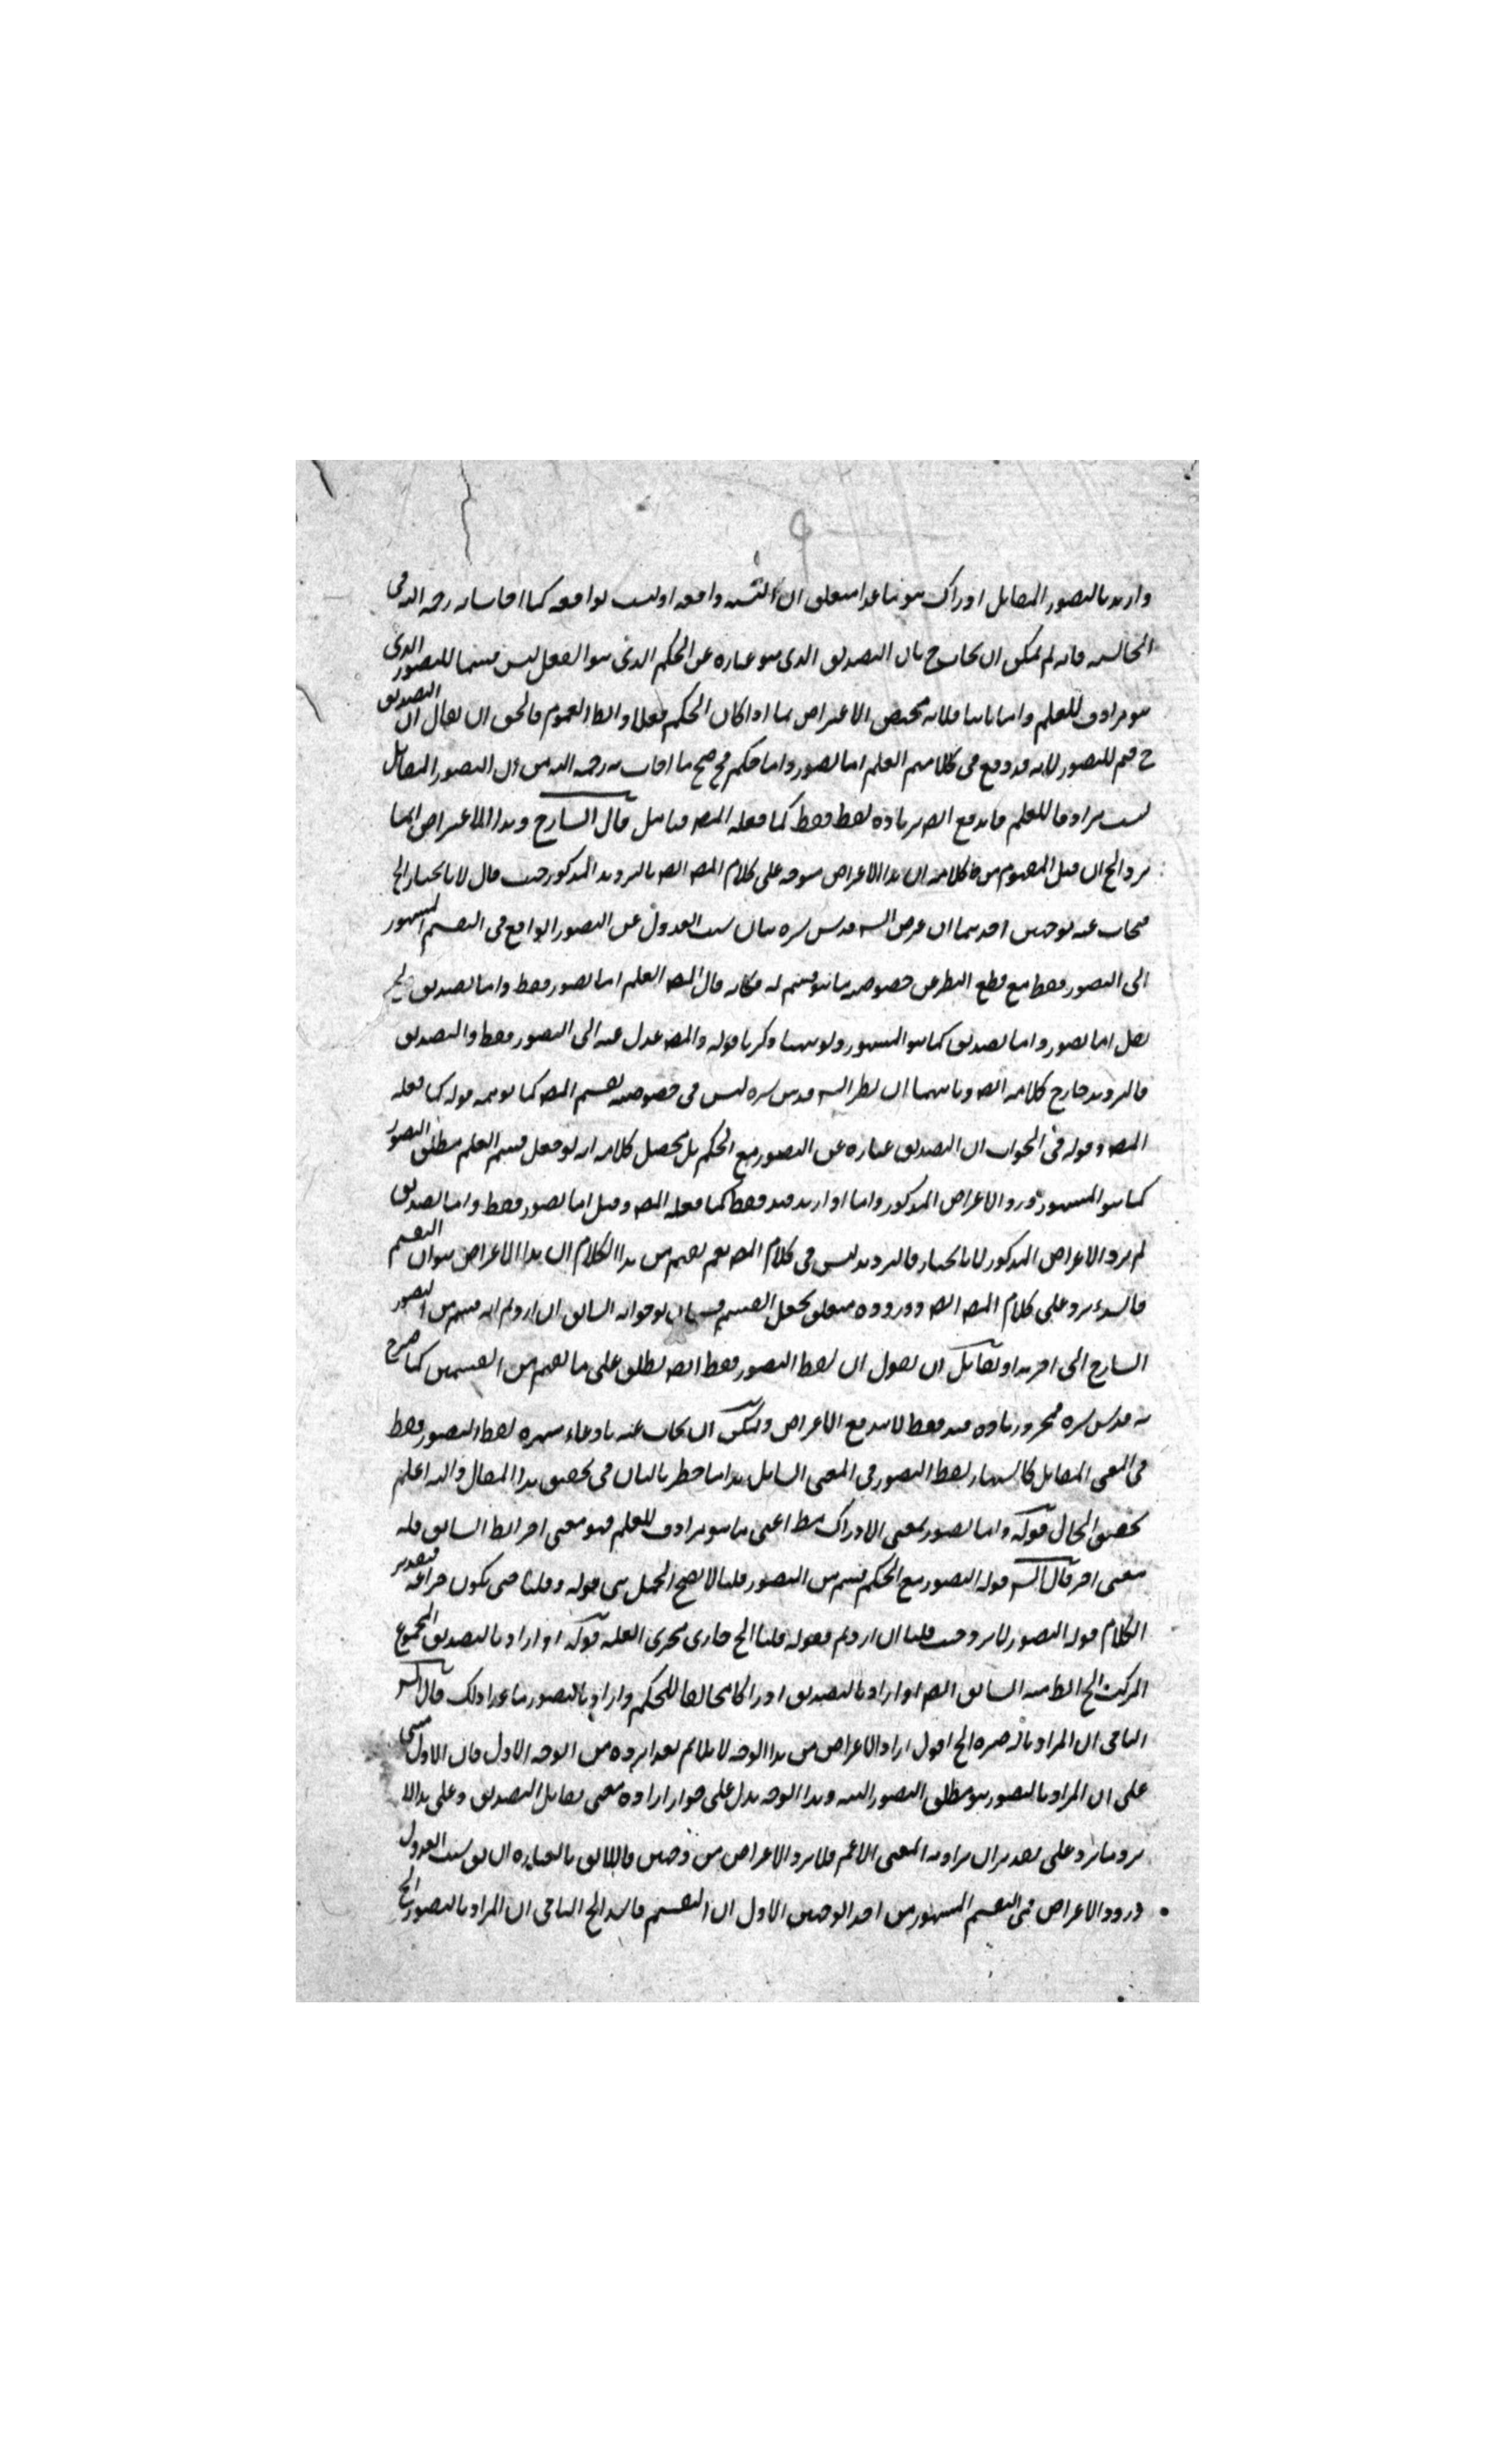 واريد بالتصور المقابل ادراك هو ما عدا متعلق ان النسبة واقعة او ليست بواقعة كما افاده رحمه الله في
الحاشية فانه لم يمكن ان يجاب ح بان التصديق الذي هو عبارة عن الحكم الذي هو الفعل ليس قسما للتصور الذي
هو مرادف للعلم واما ثانيا فلانه يختص الاعتراض بما اذا كان الحكم فعلا والظ العموم فالحق ان يقال ان التصديق
ح قسم للتصور لانه قد وقع في كلامهم العلم اما تصور واما حكم فح صح ما اجاب به رحمه الله من ان التصور المقابل
ليست مرادفا للعلم فاندفع ايضه بزيادة لفظ فقط كما فعله المص فتامل قال الشارح وهذا الاعتراض ايضا
يرد الخ ان قيل المفهوم من كلامه ان هذا الاعتراض متوجه على كلام المص ايضه بالترديد المذكور حيث قال لانا نختار الخ
فيجاب عنه بوجهين احدهما ان غرض الش قدس سره بيان سبب العدول عن التصور الواقع في التقسيم المشهور
الى التصور فقط مع قطع النظر عن خصوصية ما هو قسيم له فكانه قال المص العلم اما تصور فقط واما تصديق ولم
يقل اما تصور واما تصديق كما هو المشهور ولو ههنا ذكر ما قوله والمص عدل عنه الى التصور فقط والتصديق
فالترديد خارج كلامه ايضه وثانيهما ان نظر الش قدس سره ليس في خصوصية تقسيم المص كما يوهمه قوله كما فعله
المص وقوله في الجواب ان التصديق عبارة عن التصور مع الحكم بل محصل كلامه انه لو جعل قسم العلم مطلق التصور
كما هو المشهور ورد الاعتراض المذكور واما اذا زيد قيد فقط كما فعله المص وقيل اما تصور فقط واما تصديق
لم يرد الاعتراض المذكور لانا نختار فالترديد ليس في كلام المص نعم يفهم من هذا الكلام ان هذا الاعتراض هو ان التقسيم
فاسد يرد على كلام المص ايضه ووروده متعلق بجعل القسم جوابه السابق ان اردتم انه قسم من التصور
الشارح الى اخره ولقائل ان يقول ان لفظ التصور فقط ايضه يطلق على ما يفهم من القسمين كما صرح
به قدس سره فمجرد زيادة قيد فقط لا يندفع الاعتراض ويمكن ان يجاب عنه بادعاء شهرة لفظ التصور فقط
في المعنى المقابل كاشتهار لفظ التصور في المعنى الشامل هذا ما خطر بالبال في تحقيق هذا المقال والله اعلم
بحقيق الحال قوله واما تصور بمعنى الادراك مط اعني ما هو مرادف للعلم فهو معنى اخر الظ السابق فله
معنى اخر قال الش قوله التصور مع الحكم قسم من التصور قلنا لا يصح الحمل بين قوله وقلنا حتى يكون جزاء فتقدير
الكلام قوله التصور لا يرد حيث قلنا ان اردتم فقوله قلنا الخ جاري مجرى العلة قوله اذا اراد بالتصديق المجموع
المركب الخ الظ السابق ايضه اذا اراد بالتصديق ادراكا مخالفا للحكم واراد بالتصور ما عدا ذلك قال الش
الثاني ان المراد بالتصور الخ اقول ايراد الاعتراض من هذا الوجه لا يلائم بعد ايراده من الوجه الاول فان الاول مبني
على ان المراد بالتصور هو مطلق التصور البتة وهذا الوجه يدل على جواز ارادة معنى يقابل التصديق وعلى هذا لا
يرد ما يرد على تقدير ان يراد به المعنى الاعم فلا يرد الاعتراض من وجهين فاللائق بالعبارة ان يق سبب العدول
ورود الاعتراض في التقسيم المشهور من احد الوجهين الاول ان التقسيم فاسد الخ الثاني ان المراد بالتصور الخ